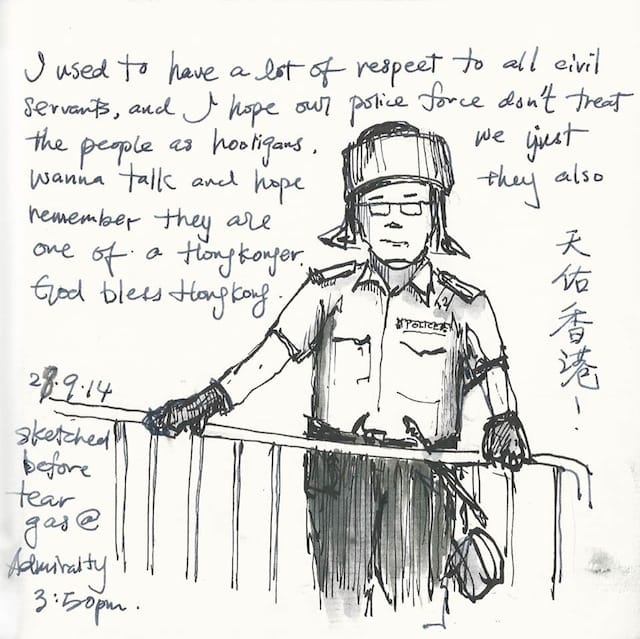 I used to have a lot of respect to all civil
servants, and I hope our police force don't treat
the people as hooligans. we just
wanna talk and hope they also
remember they are
one of a Hongkonger.
God bless Hongkong.
天佑香港!
POLICE
28.9.14
sketched
before
tear
gas @
Admiralty
3:50pm.